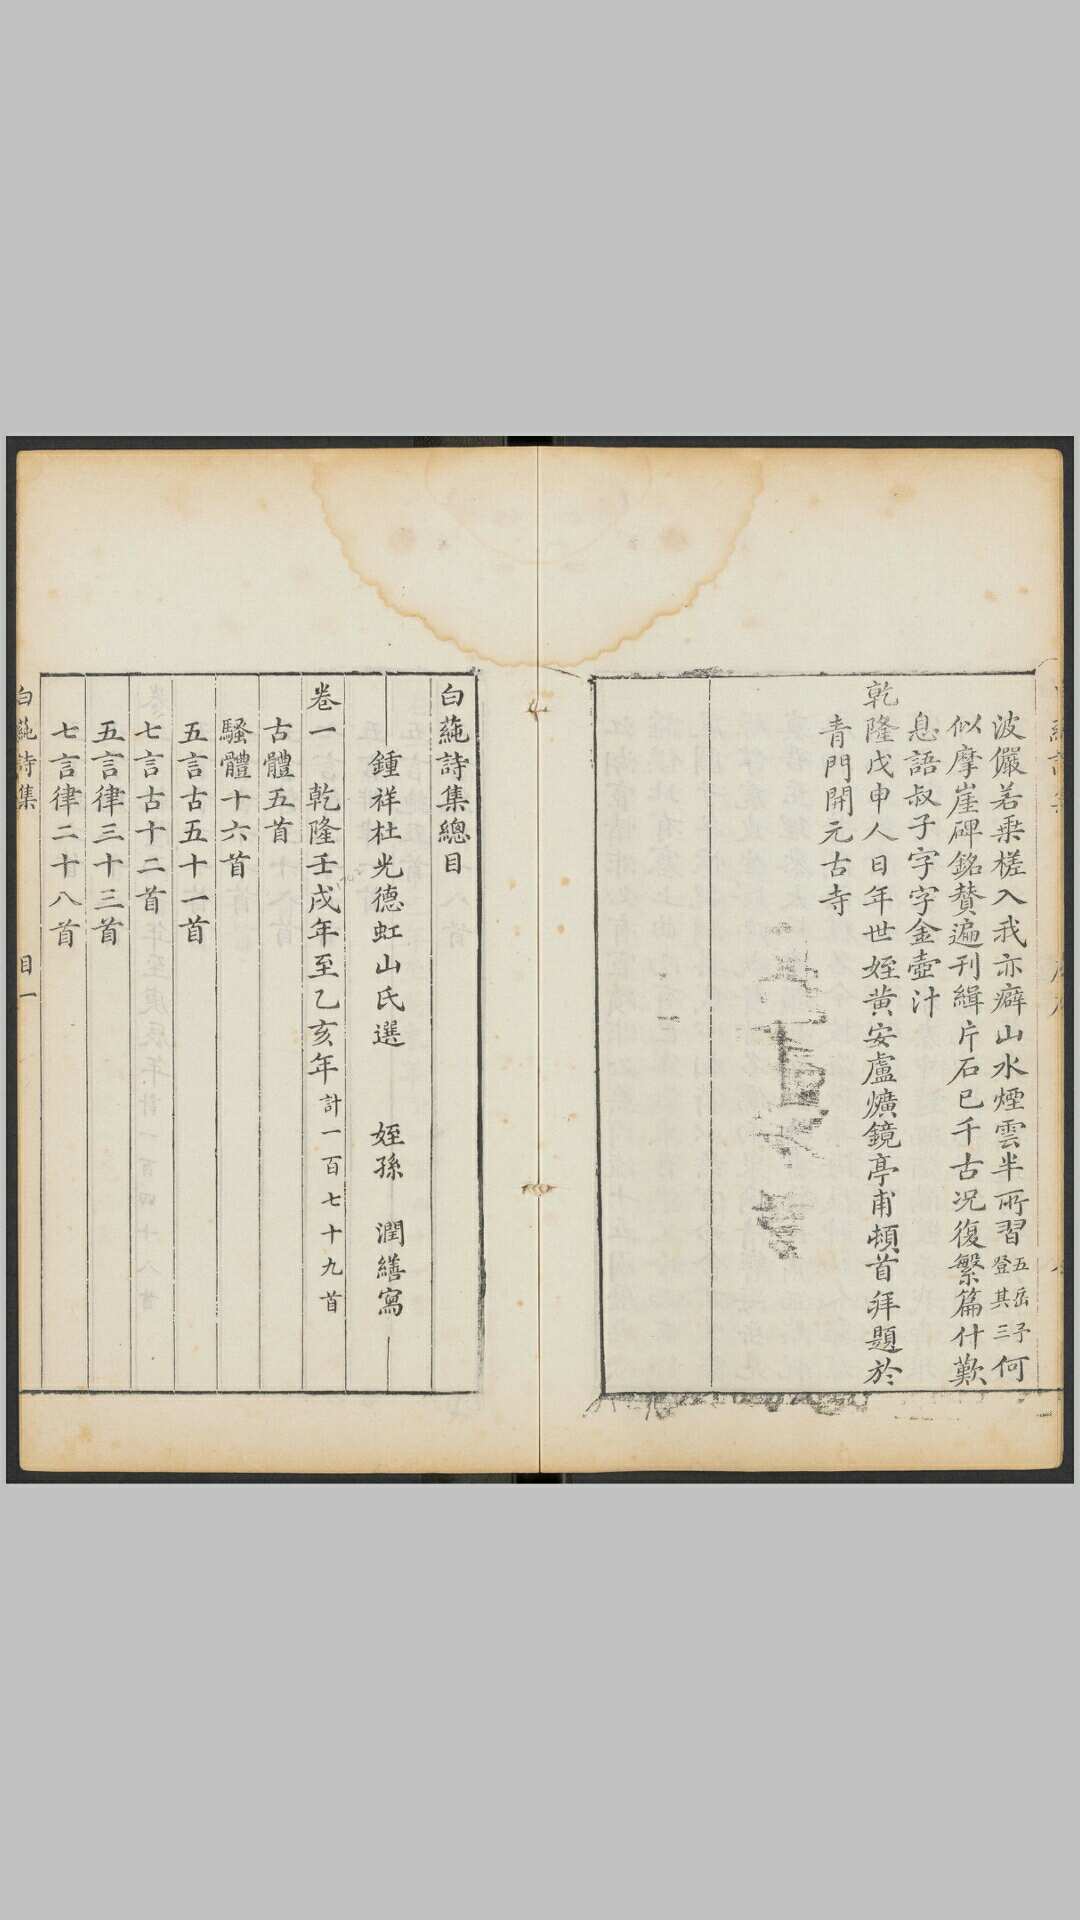 波儼若乘槎入我亦癖山水煙雲半所習五岳予登其三何
似摩崖碑銘贊遍刊緝片石已千古況復繁篇什歎
息語叔子字字金壺汁
乾隆戊申人日年世姪黄安盧爌鏡亭甫頓首拜題於
青門開元古寺
白蒓詩集總目
鍾祥杜光德虹山氏選 姪孫 潤繕寫
卷一 乾隆壬戌年至乙亥年計一百七十九首
古體五首
騷體十六首
五言古五十一首
七言古十二首
五言律三十三首
七言律二十八首
白蒓詩集 目一